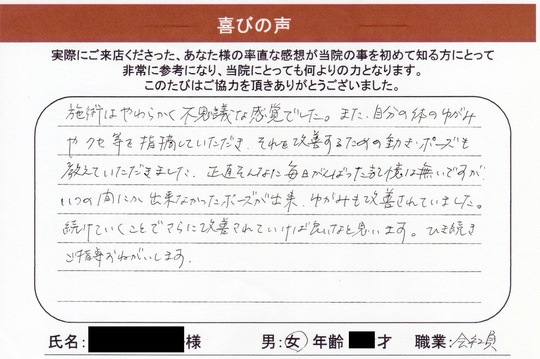 喜びの声
実際にご来店くださった、あなた様の率直な感想が当院の事を初めて知る方にとって
非常に参考になり、当院にとっても何よりの力となります。
このたびはご協力を頂きありがとうございました。
施術はやわらかく不思議な感覚でした。また、自分の体のゆがみ
やクセ等を指摘していただき、それを改善するための動き・ポーズも
教えていただきました。正直そんなに毎日がんばった記憶は無いですが、
いつの間にか出来なかったポーズが出来、ゆがみも改善されていました。
続けていくことでさらに改善されていけば良いなと思います。ひき続き
ご指導おねがいします。
氏名: 様 男:女 年齢 才 職業:会社員